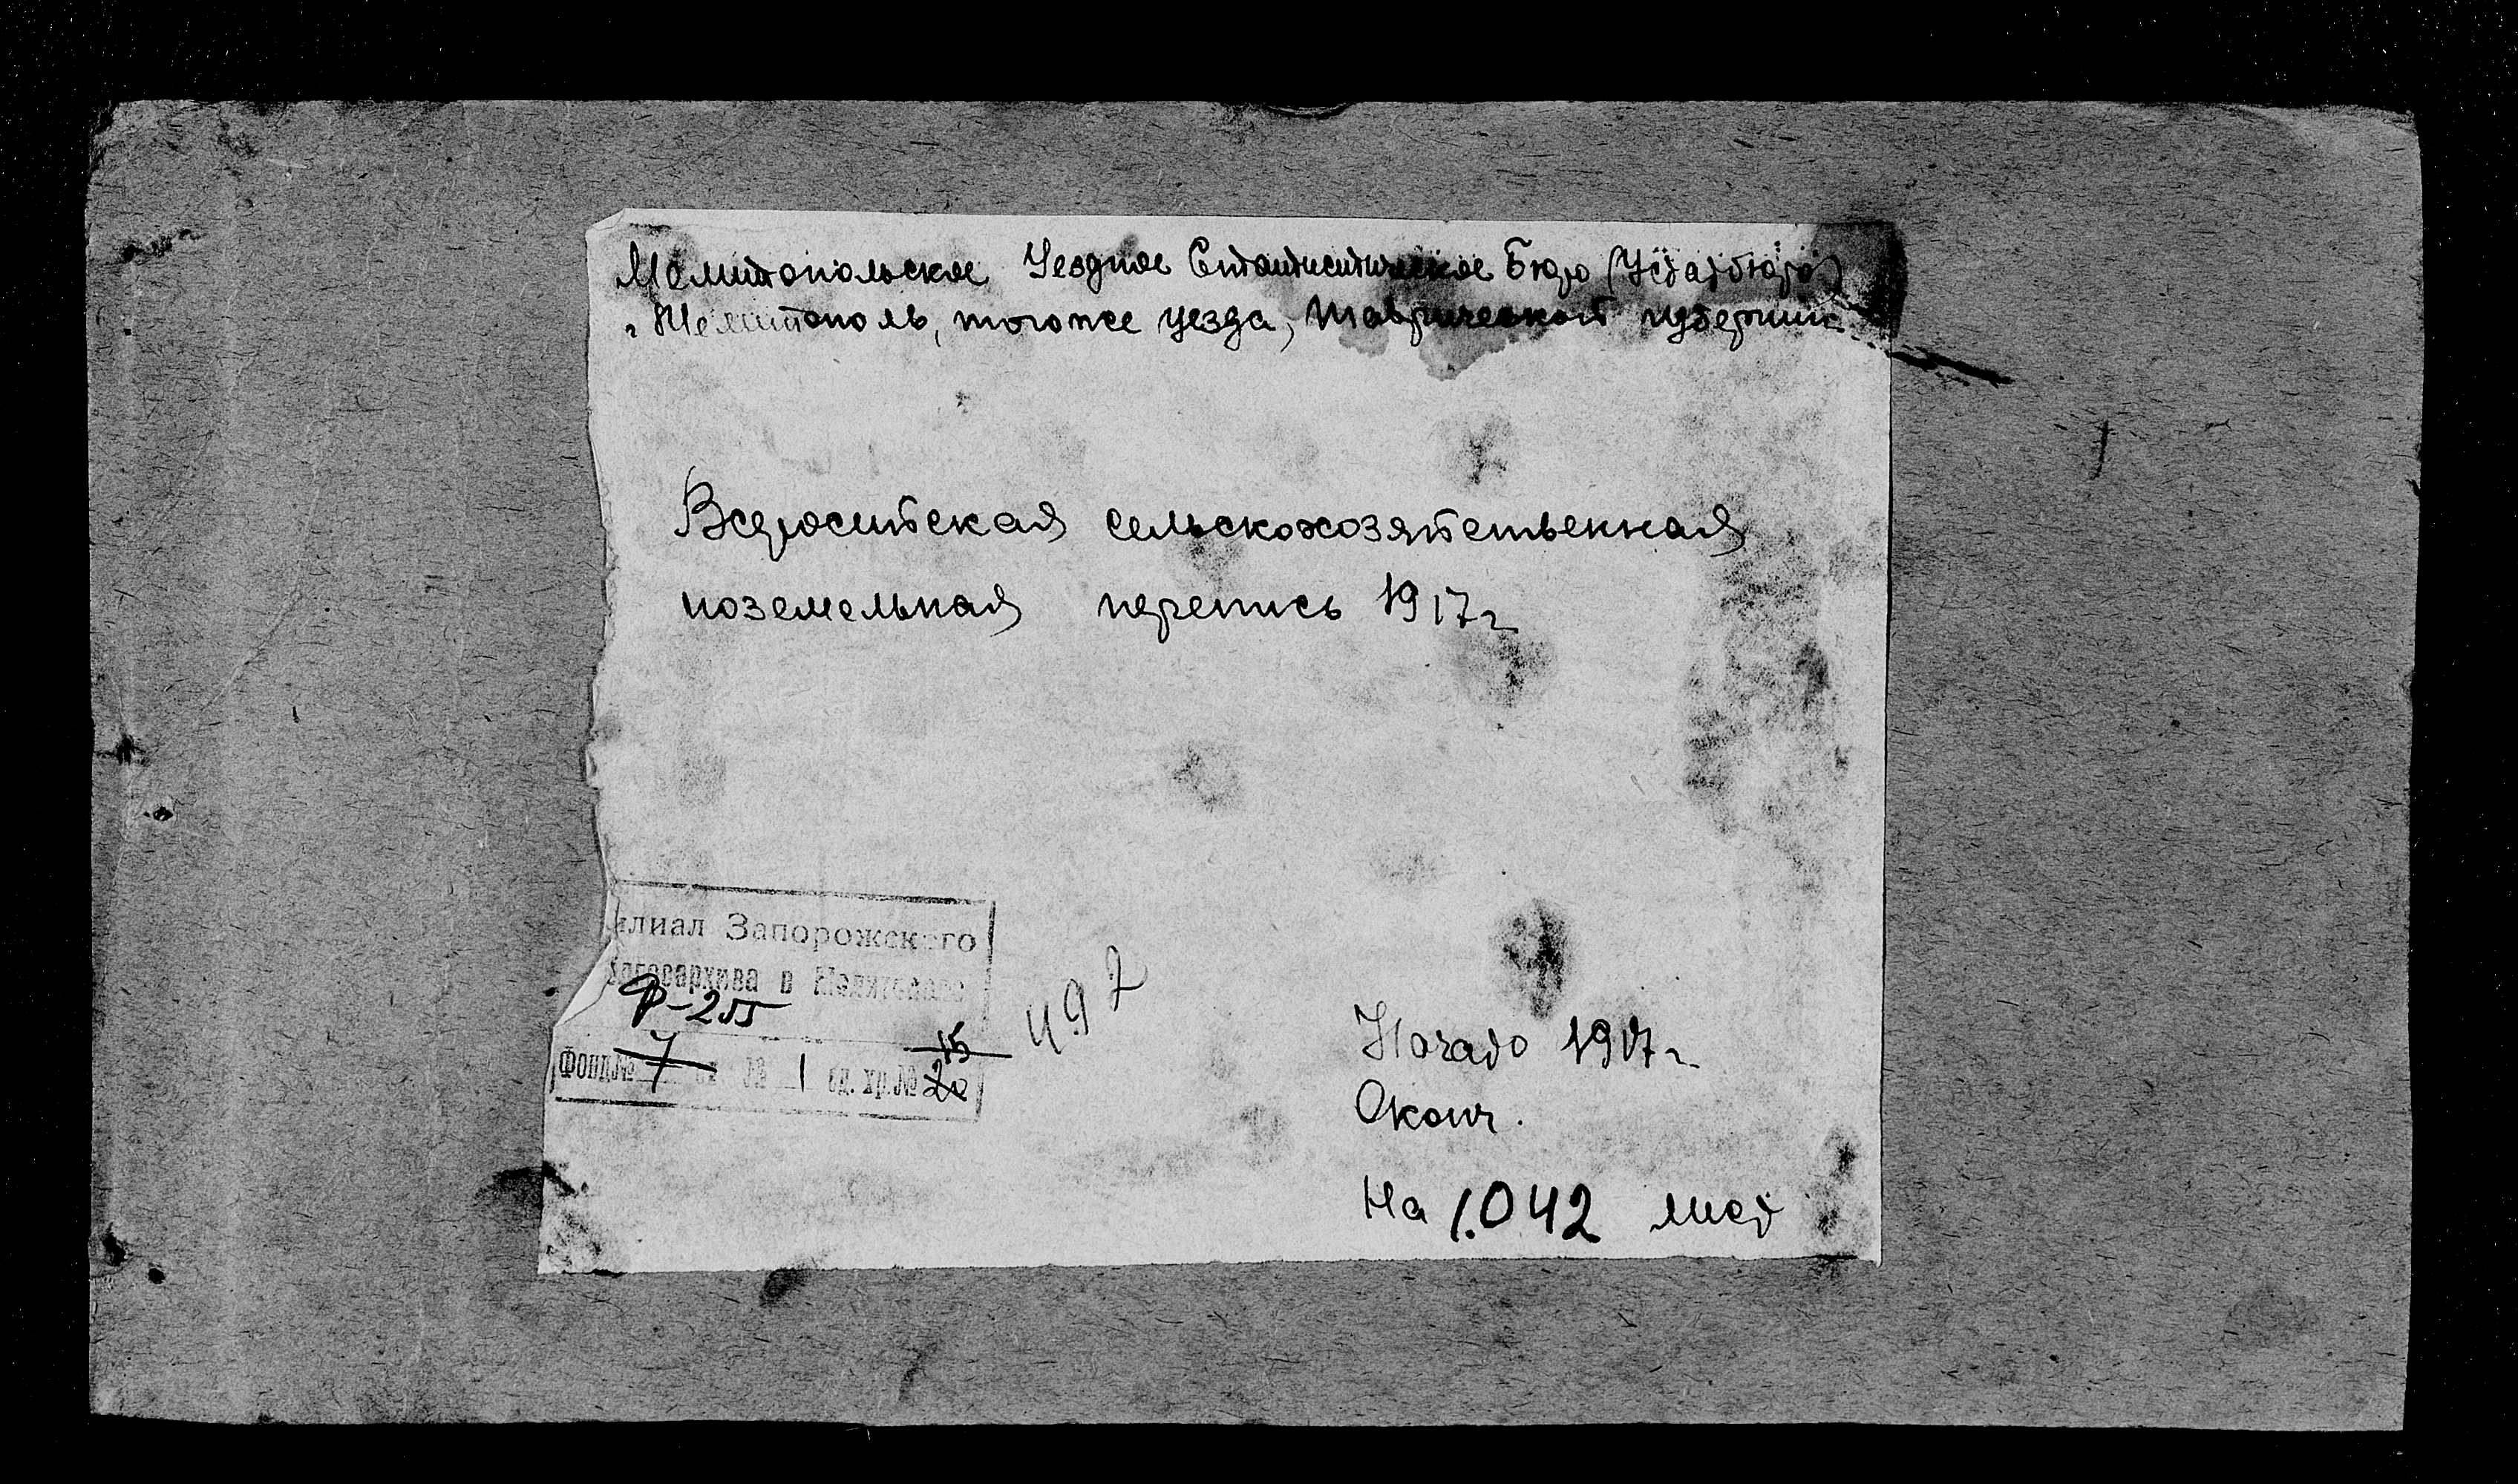 Мелитопольское Уездное Статистическое Бюро (Устатбюро)
г. Мелитополь, того же уезда, Таврической губернии
Всеросийская сельскохозяйственная
поземельная перепись 1917 г
илиал Запорожского
благосархива в Мелитополе
Ф-255
15
Фонд № 7 оп № 1 ед. хр. № 20
492
Начато 1917 г
Оконч.
На 1.042 лист